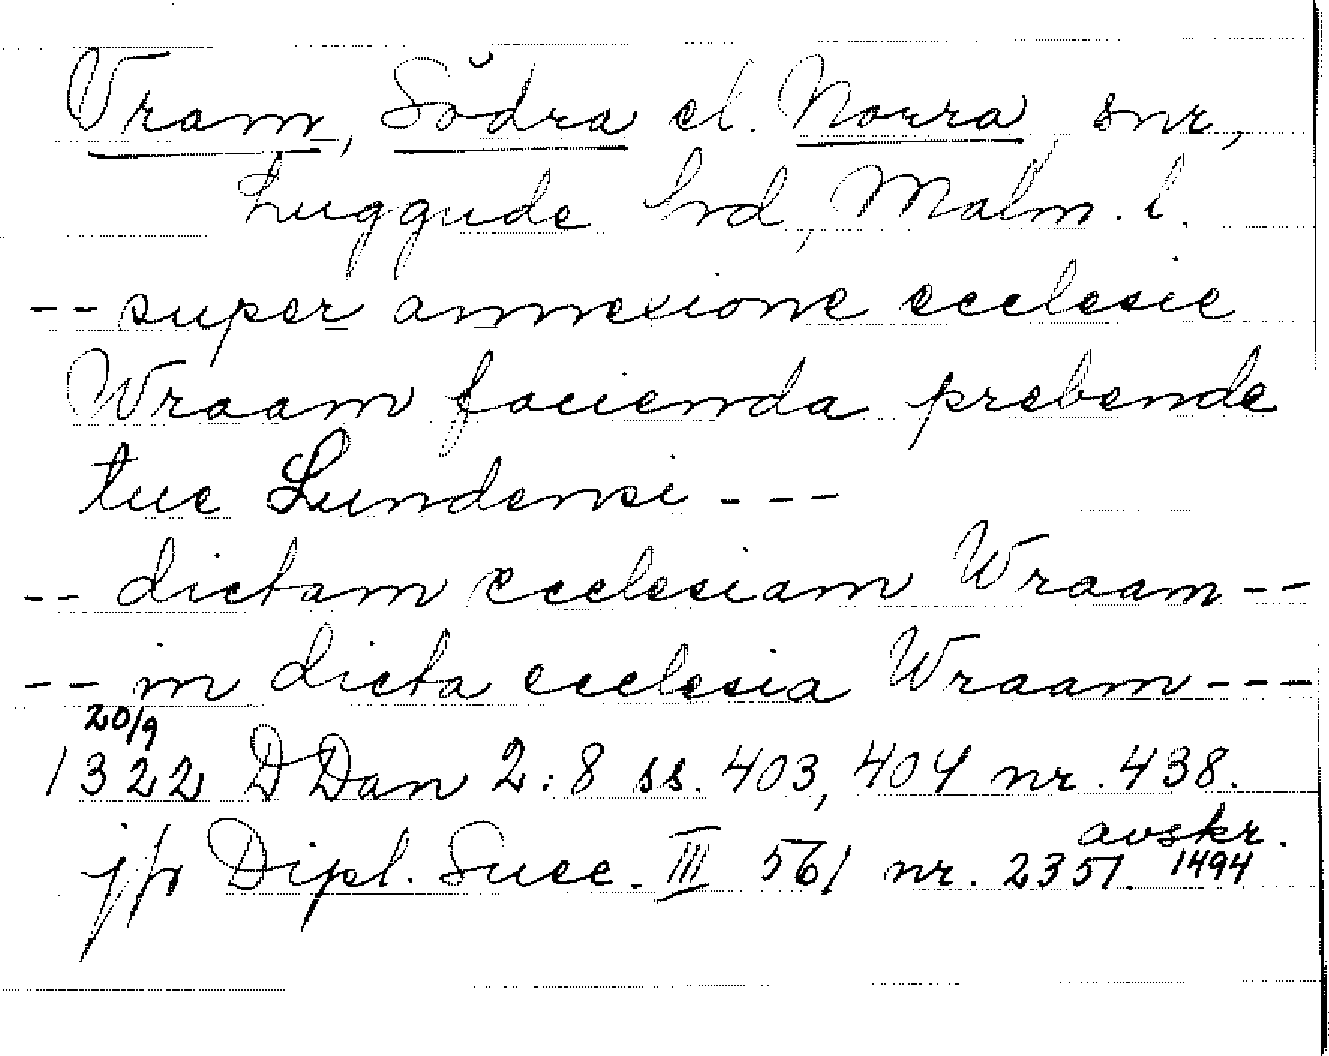 Vram, Södra el. Norra snr,
Luggude hrd, Malm. l.
-- super annexione ecclesie
Wraam facienda prebende
tue Lundensi ---
-- dictam ecclesiam Wraam --
-- in dicta ecclesia Wraam ---
20/9
1322 DDan 2:8 ss. 403, 404 nr. 438.
avskr.
jfr Dipl. Suec. III 561 nr. 2351. 1494